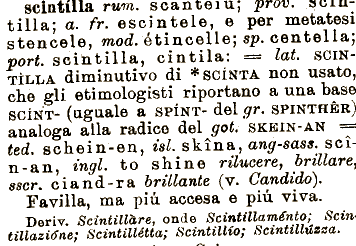 scintílla rum. scanteiu; prov. scin-
tilla; a. fr. escintele, e per metatesi
stencele, mod. étincelle; sp. centella;
port. scintilla, cintila: = lat. SCIN-
TÌLLA diminutivo di *SCÍNTA non usato,
che gli etimologisti riportano a una base
SCINT- (uguale a SPÍNT- del gr. SPINTHÊR)
analoga alla radice del got. SKEIN-AN =
ted. schein-en, isl. skîna, ang-sass. scî-
n-an, ingl. to shine rilucere, brillare,
sscr. ciand-ra brillante (v. Candido).
Favilla, ma più accesa e più viva.
Deriv. Scintillàre, onde Scintillaménto; Scin-
tillazióne; Scintillétta; Scintillío; Scintillúzza.